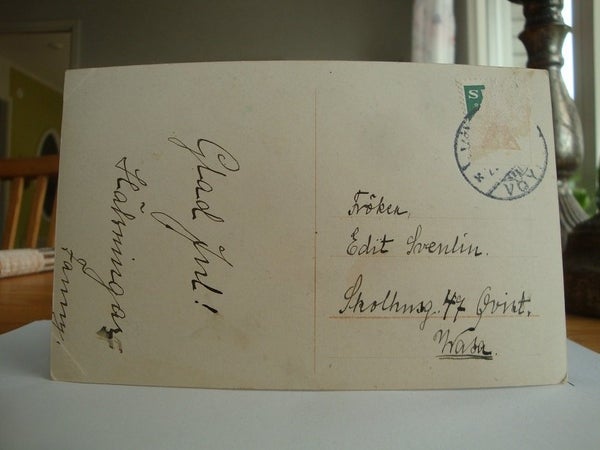 Glad Jul!
Hälsningar
Fanny.
Fröken,
Edit Svenlin.
Skolhusg. 47 Qvist.
Wasa.
S